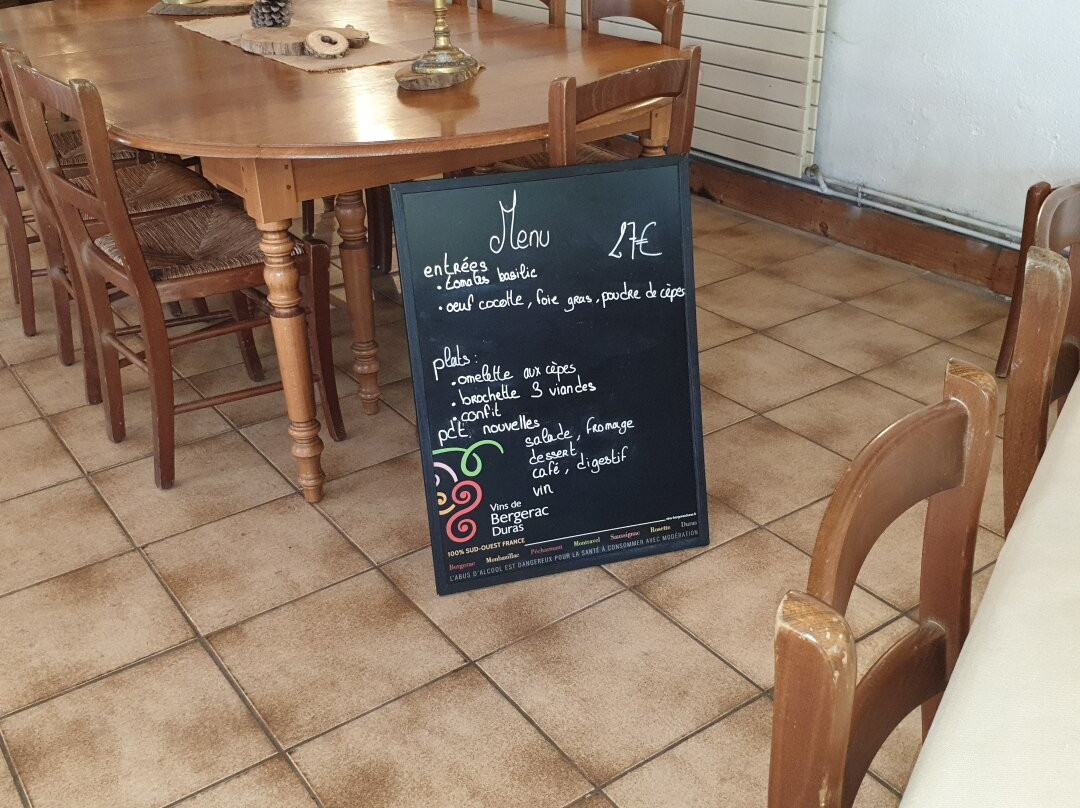 Menu 27€
entrées
• tomates basilic
• oeuf cocotte, foie gras, poudre de cèpes
plats :
• omelette aux cèpes
• brochette 3 viandes
• confit
pdt nouvelles
salade, fromage
dessert
café, digestif
vin
Vins de
Bergerac
Duras
100% SUD-OUEST FRANCE
Bergerac Monbazillac Pécharmant Montravel Saussignac Rosette Duras
L'ABUS D'ALCOOL EST DANGEREUX POUR LA SANTÉ À CONSOMMER AVEC MODÉRATION